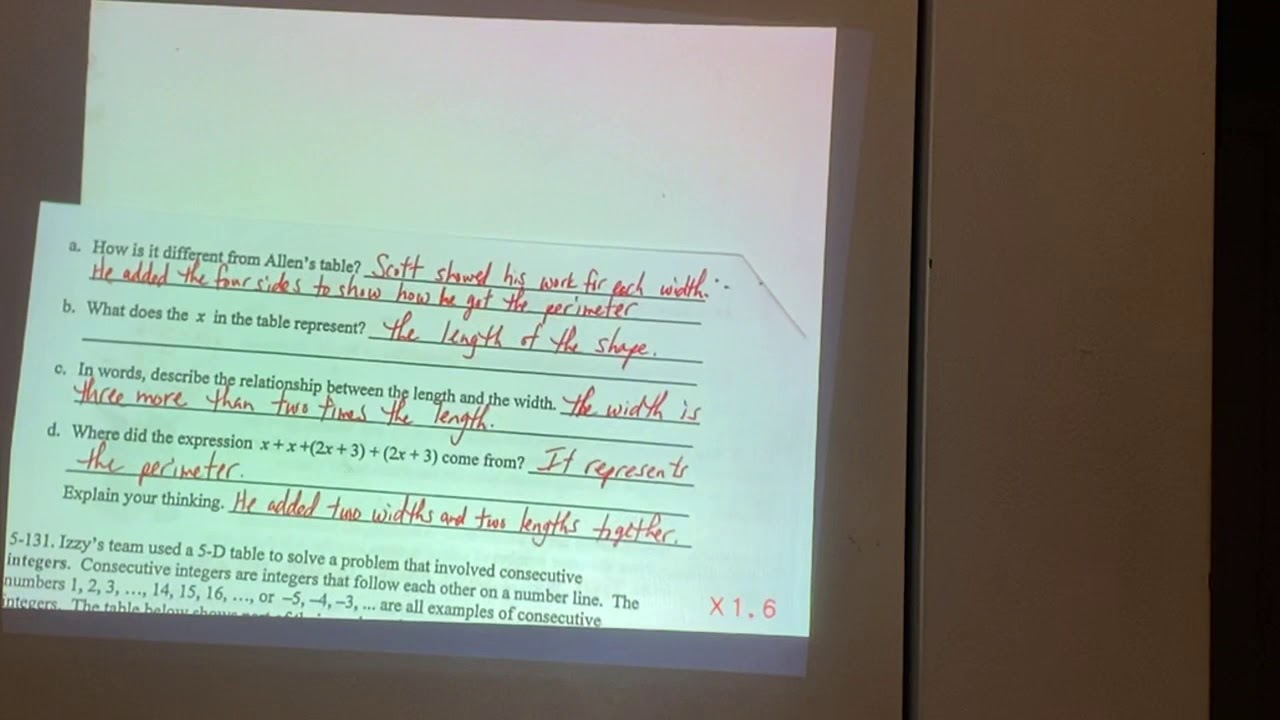 a. How is it different from Allen's table? Scott showed his work for each width.
He added the four sides to show how he got the perimeter
b. What does the x in the table represent? the length of the shape.
c. In words, describe the relationship between the length and the width. the width is
three more than two times the length.
d. Where did the expression x + x +(2x + 3) + (2x + 3) come from? It represents
the perimeter.
Explain your thinking. He added two widths and two lengths together.
5-131. Izzy's team used a 5-D table to solve a problem that involved consecutive
integers. Consecutive integers are integers that follow each other on a number line. The
numbers 1, 2, 3, ..., 14, 15, 16, ..., or –5, –4, –3, ... are all examples of consecutive
integers. The table below shows part of
X1.6